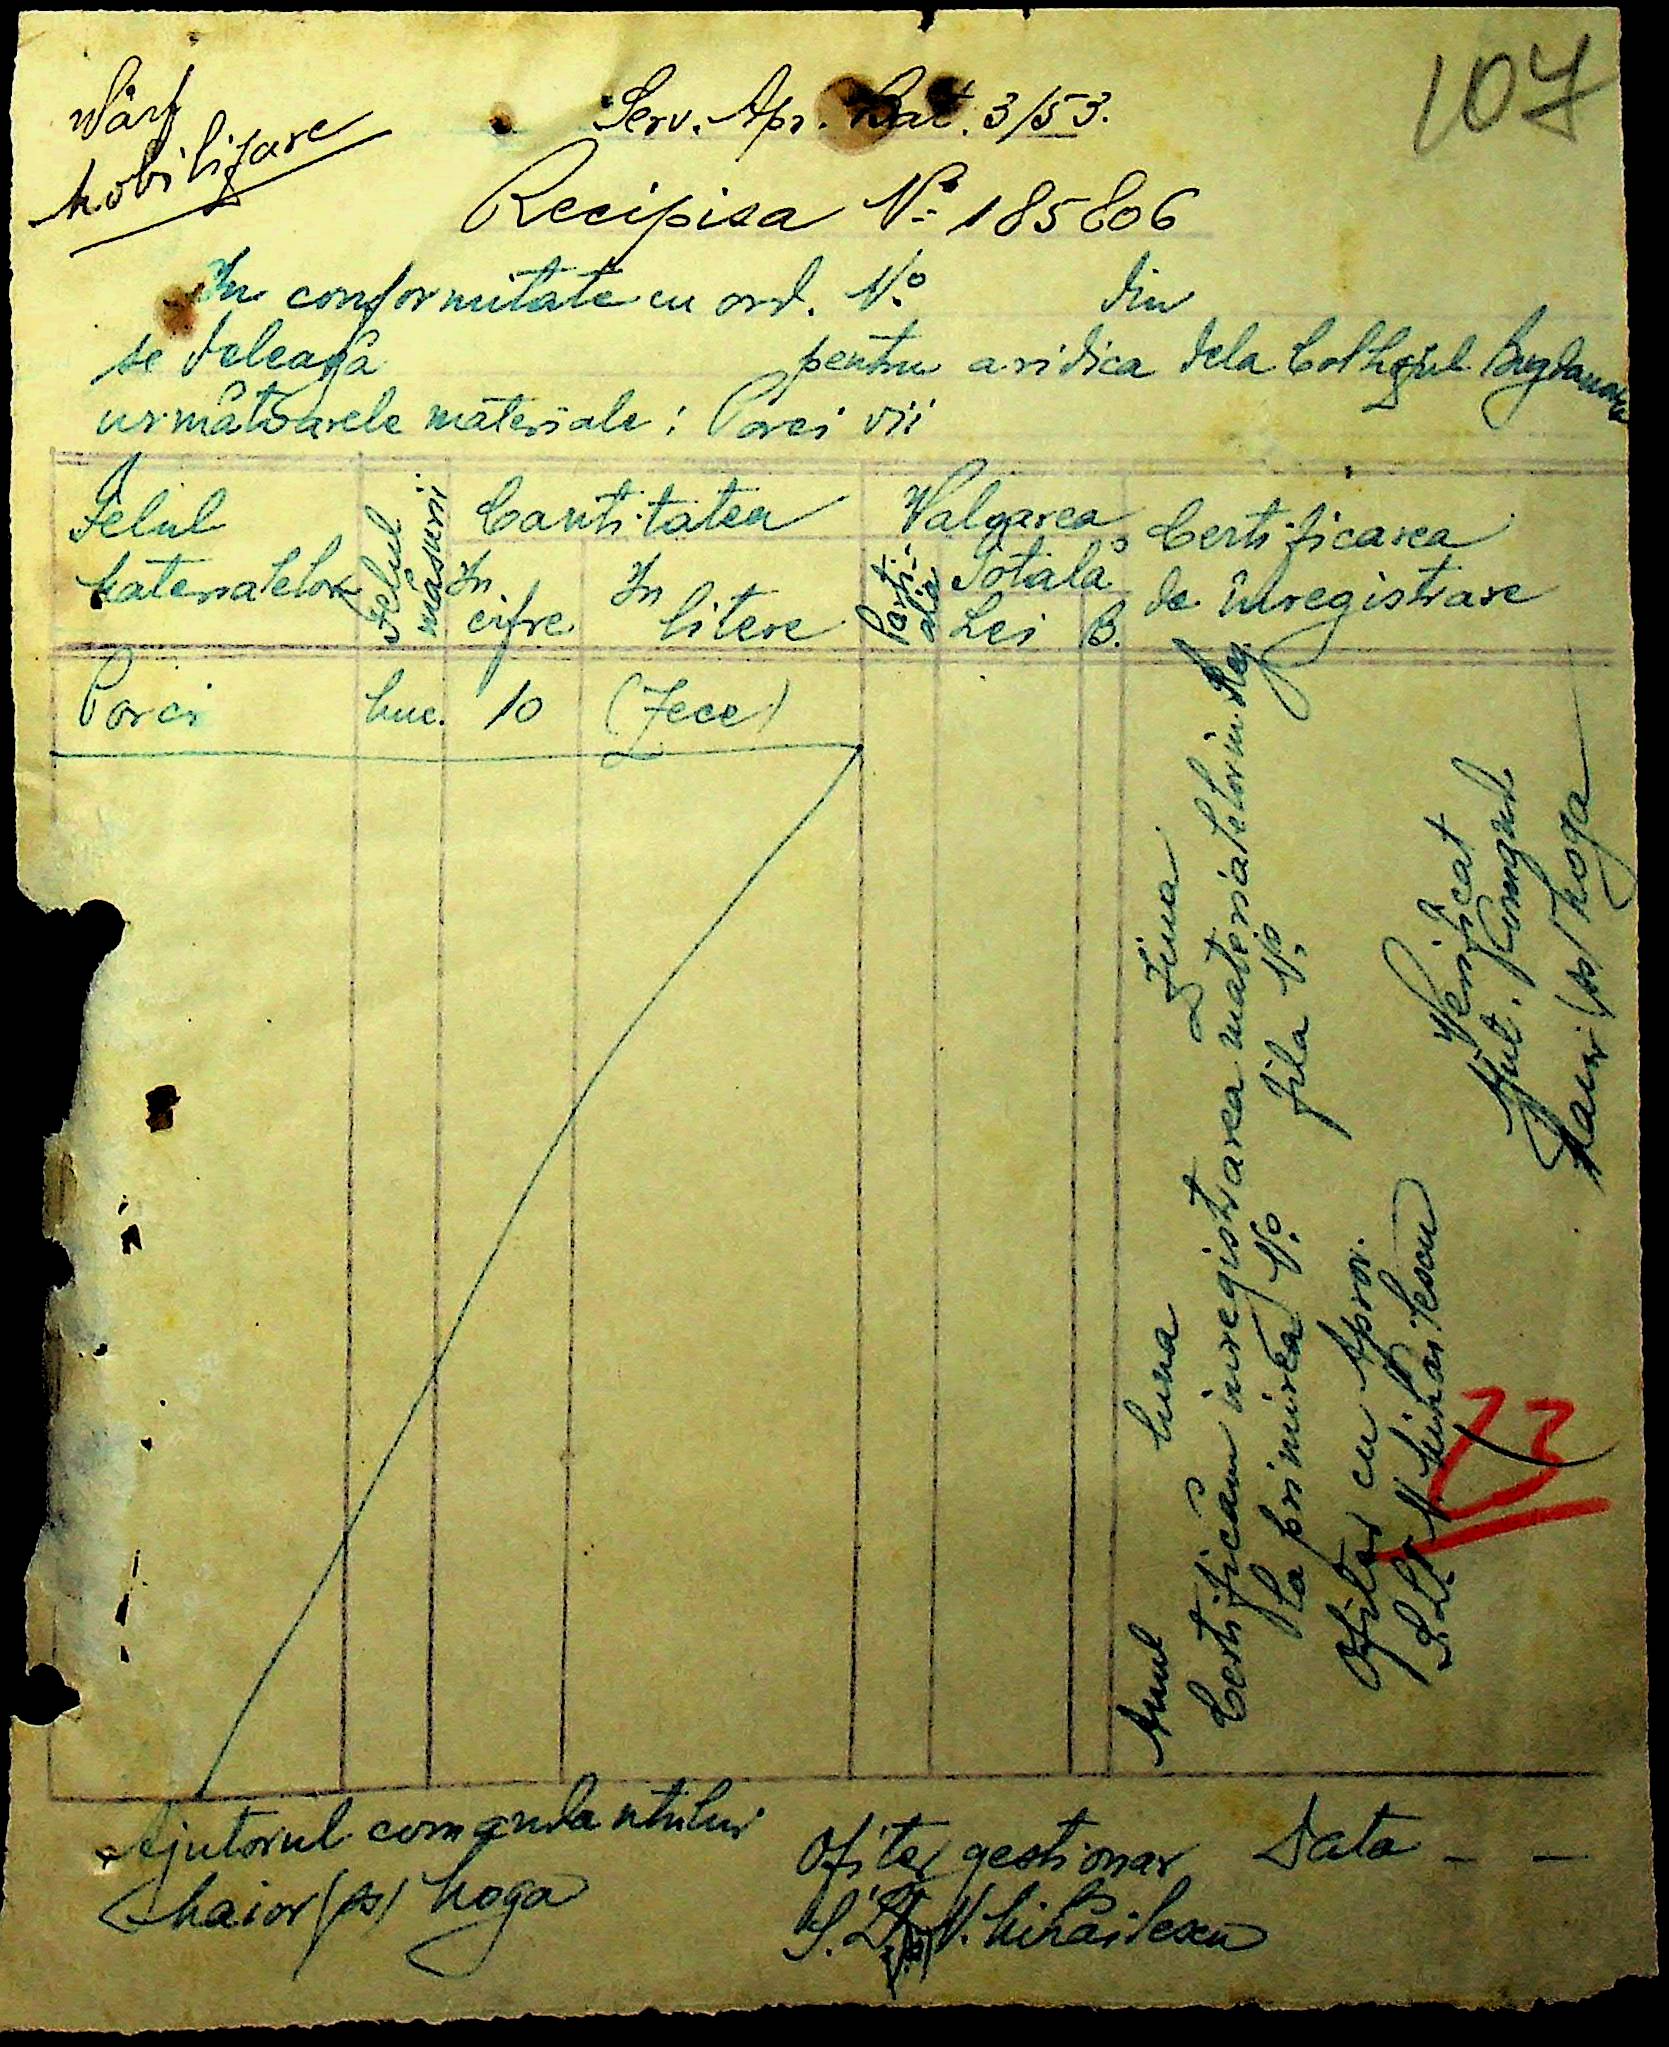 107
Vârf
Mobilizare
Serv. Apr. Bat. 3/53.
Recipisa No 185806
In conformitate cu ord. No. din
se deleagă pentru a ridica dela Colhozul
următoarele materiale: Porci vii
Felul materialelor
Felul măsurii
Cantitatea
In cifre
In litere
Valoarea
Parțială
Totală
Lei B.
Certificarea
de înregistrare
Porci buc. 10 (Zece)
Anul Luna Ziua
Certificăm inregistrarea materialelor in Reg.
la primirea No. fila No.
Ofițer cu Aprov.
S. Lt. N. Mihăilescu
Verificat
Ajut. Comand
Maior (ss) Moga
73
Ajutorul comandantului
Maior (ss) Moga
Ofițer gestionar
S. Lt. N. Mihăilescu
Data - -